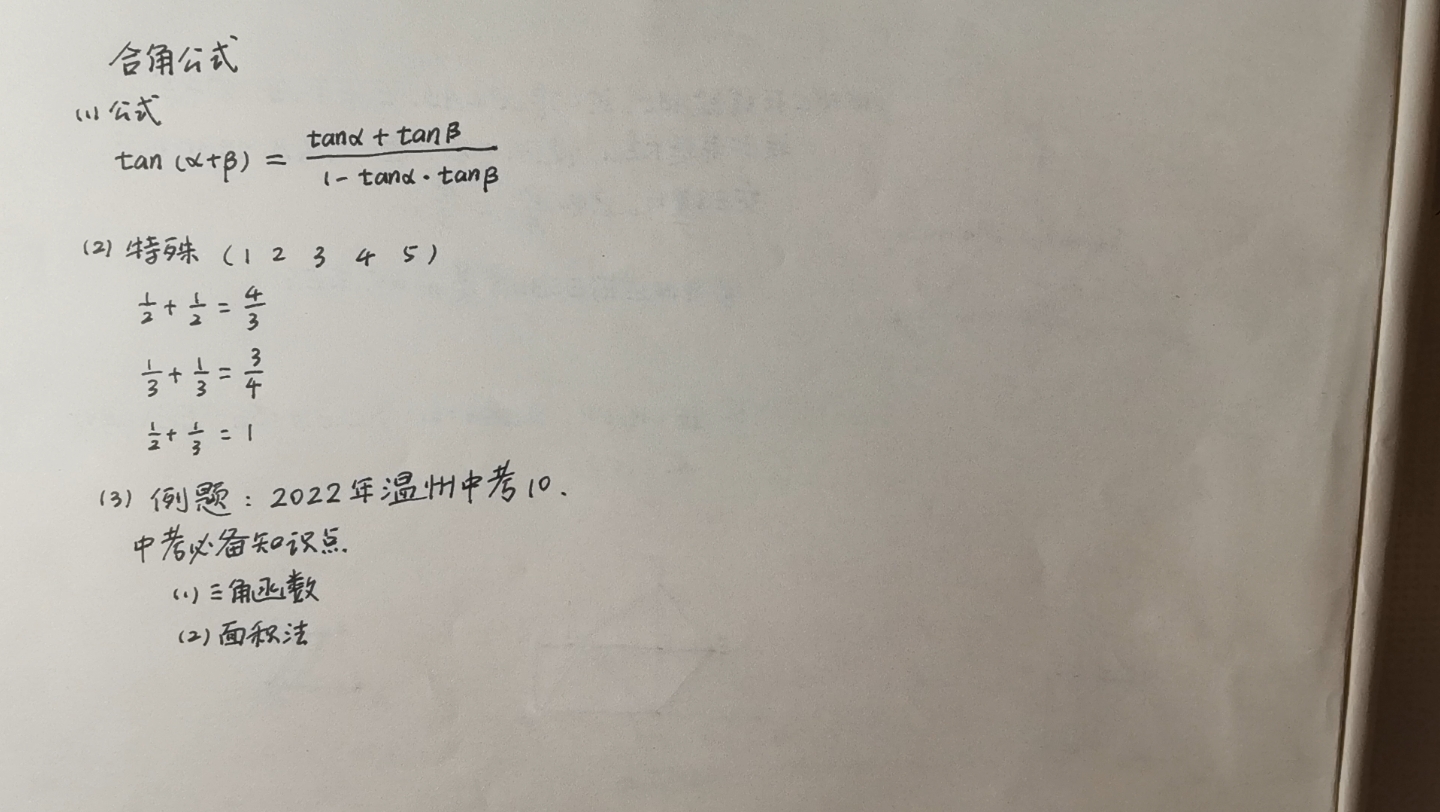 合角公式
(1) 公式
tan (α+β) = (tanα + tanβ) / (1 - tanα · tanβ)
(2) 特殊 (1 2 3 4 5)
1/2 + 1/2 = 4/3
1/3 + 1/3 = 3/4
1/2 + 1/3 = 1
(3) 例题: 2022年温州中考10.
中考必备知识点.
(1) 三角函数
(2) 面积法